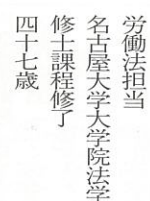 労働法担当
名古屋大学大学院法学
修士課程修了
四十七歳